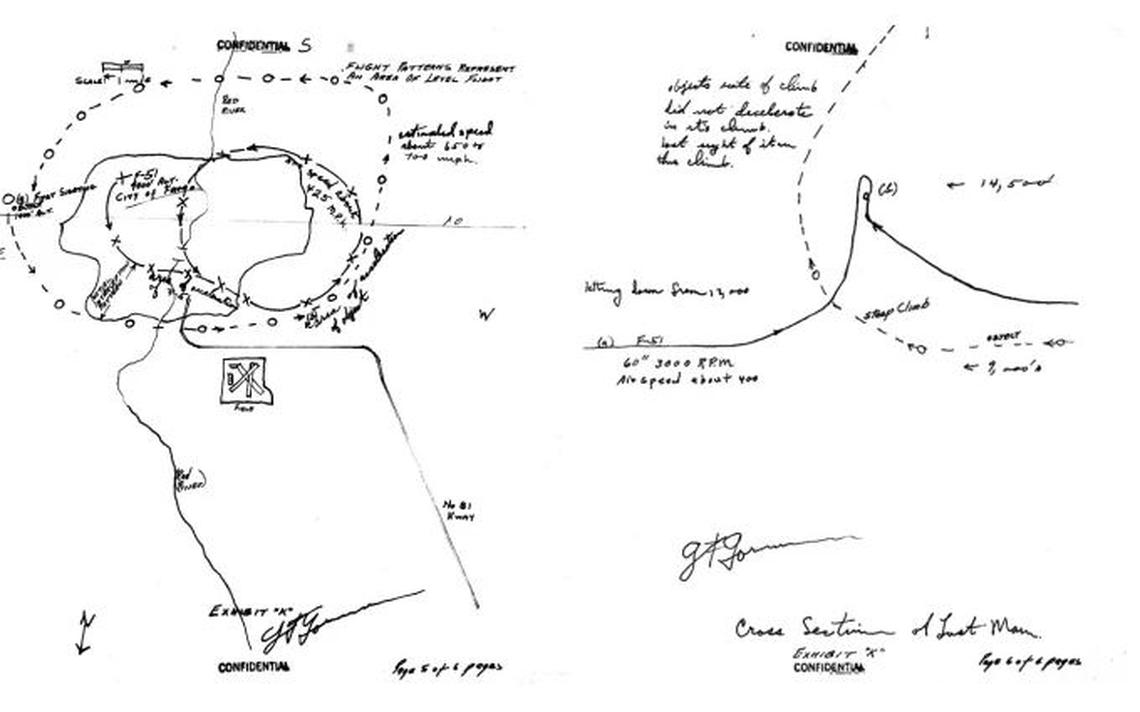 CONFIDENTIAL S
SCALE 1 mile
FLIGHT PATTERNS REPRESENT
AN AREA OF LEVEL FLIGHT
RED
RIVER
estimated speed
about 650 to
700 mph.
(a) FIRST SIGHTING
OBJECT
1000' ALT.
F-51
ALT.
CITY OF FARGO
speed about
425 M.P.H.
10
E
W
area of
acceleration
of object
FIELD
Red
River
No 81
HWAY
N
EXHIBIT "K"
GFGorman
CONFIDENTIAL
Page 5 of 6 pages
CONFIDENTIAL
objects rate of climb
did not decelerate
in its climb.
lost sight of it in
this climb.
(b)
← 14,500
letting down from 12,000
Steep Climb
(a) F-51
60" 3000 R.P.M
Air speed about 400
OBJECT
← 9,000's
GFGorman
Cross Section of Last Man.
EXHIBIT "K"
CONFIDENTIAL
Page 6 of 6 pages